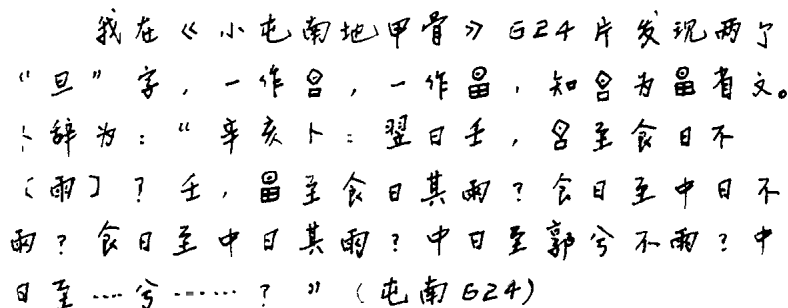 我在《小屯南地甲骨》624片发现两个
“旦”字，一作，一作，知为省文。
卜辞为：“辛亥卜：翌日壬，至食日不
〔雨〕？壬，至食日其雨？食日至中日不
雨？食日至中日其雨？中日至郭兮不雨？中
日至……兮……？”（屯南624）